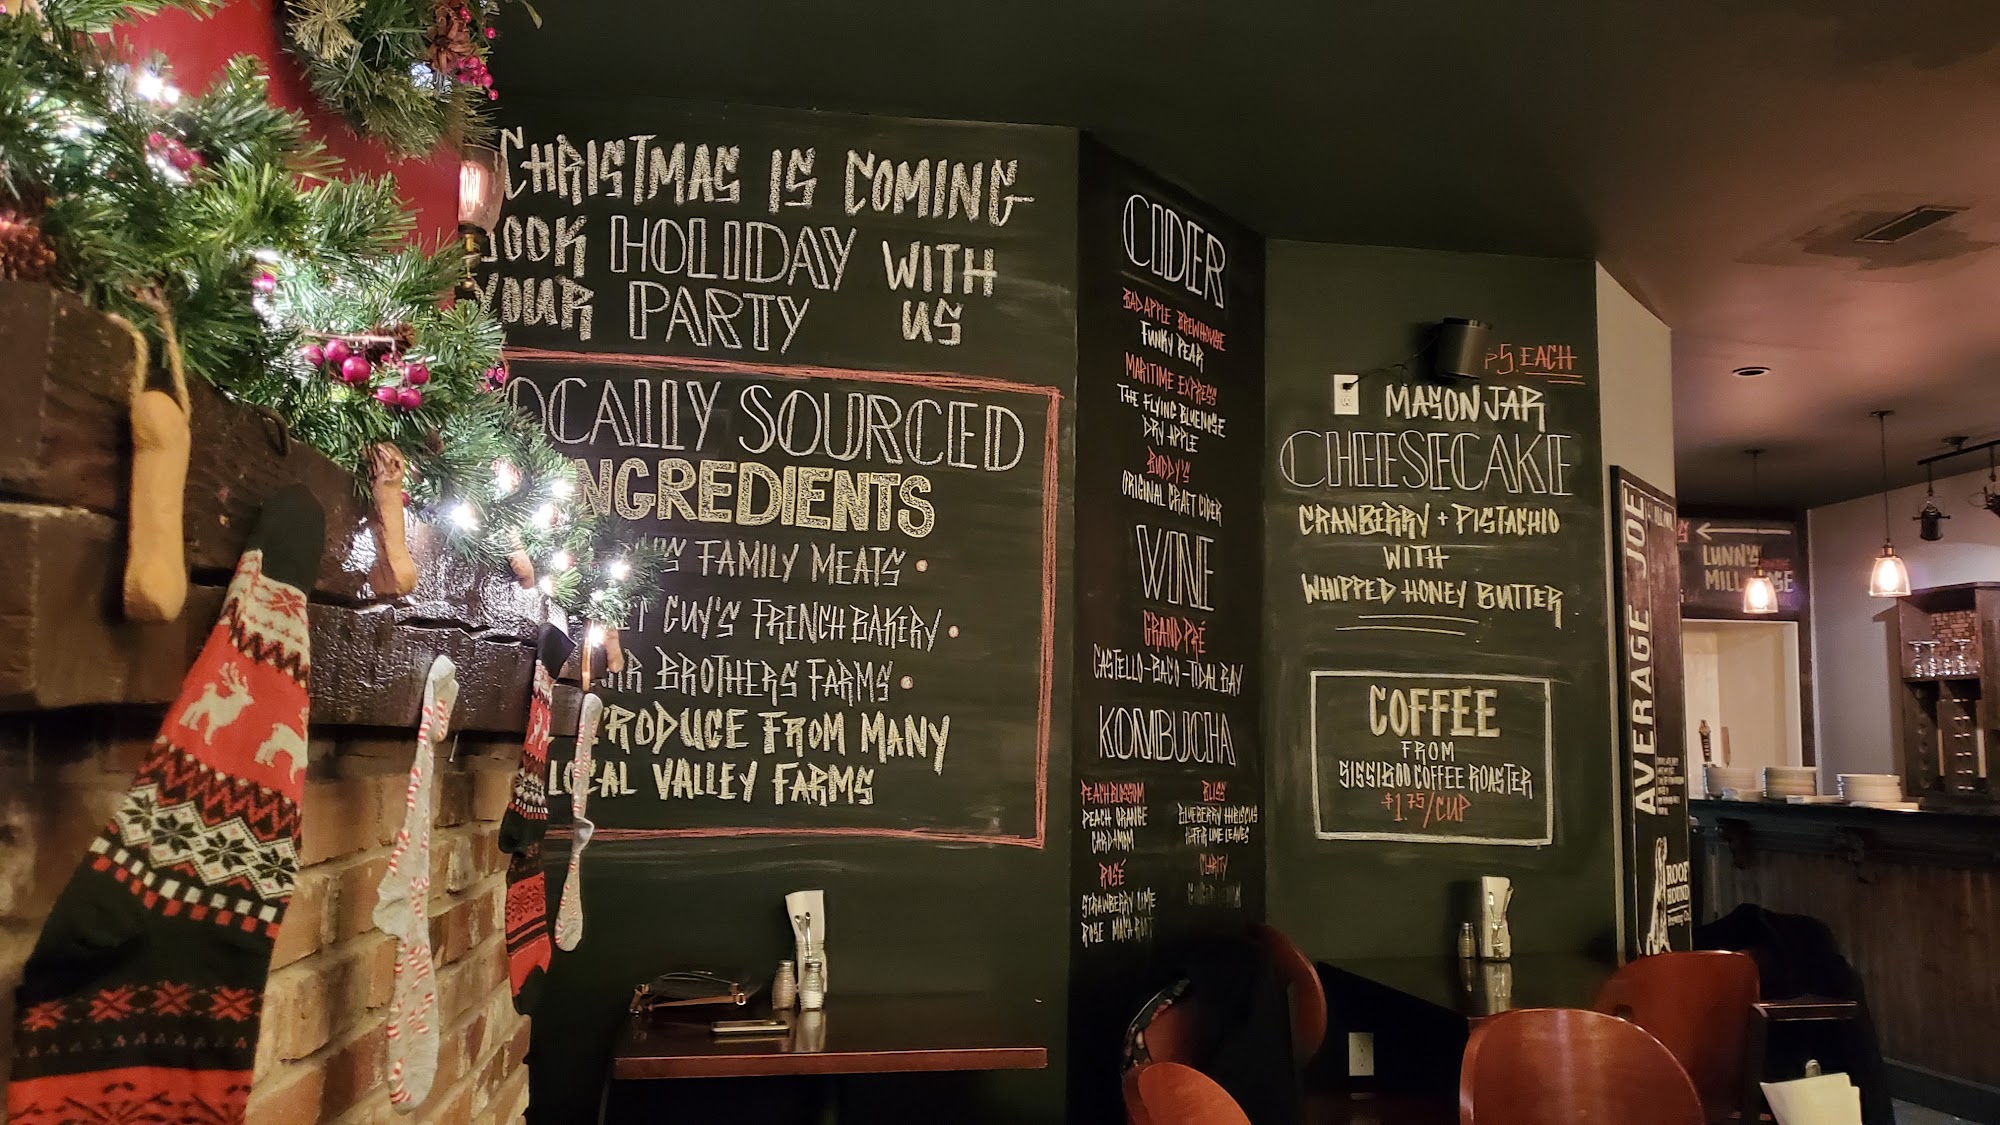 CHRISTMAS IS COMING
HOLIDAY WITH
YOUR PARTY US
SOURCED
INGREDIENTS
FAMILY MEATS •
GUY'S FRENCH BAKERY •
BROTHERS FARMS •
PRODUCE FROM MANY
LOCAL VALLEY FARMS
CIDER
BAD APPLE BREWHOUSE
FUNKY PEAR
MARITIME EXPRESS
THE FLYING BLUENOSE
DRY APPLE
BUDDY'S
ORIGINAL CRAFT CIDER
WINE
GRAND PRÉ
CASTELLO - BACO - TIDAL BAY
KOMBUCHA
PEACH BLOSSOM
PEACH ORANGE
CARDAMOM
ROSÉ
STRAWBERRY LIME
ROSE
BLISS
BLUEBERRY HIBISCUS
LIME LEAVES
CLARITY
5. EACH
MASON JAR
CHEESECAKE
CRANBERRY + PISTACHIO
WITH
WHIPPED HONEY BUTTER
COFFEE
FROM
SISSIBOO COFFEE ROASTER
$1.75/CUP
AVERAGE JOE
ROOF
HOUND
LUNN'S
MILL